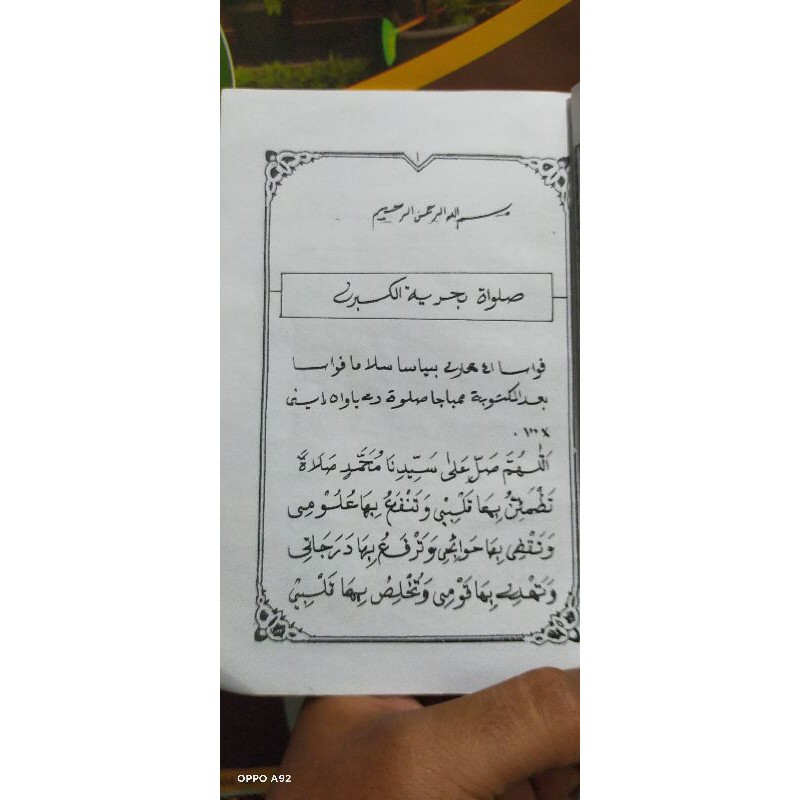 ١
بسم الله الرحمن الرحيم
صلواة بحرية الكبرى
فواسا ٤١ هاري بياسا سلاما فواسا
بعد المكتوبة ممباجا صلوة دي باواه ايني
١٠٠ x .
اَللّٰهُمَّ صَلِّ عَلَى سَيِّدِنَا مُحَمَّدٍ صَلَاةً
تَطْمَئِنُّ بِهَا قَلْبِيْ وَتَنْفَعُ بِهَا عُلُوْمِيْ
وَتَقْضِيْ بِهَا حَوَائِجِيْ وَتَرْفَعُ بِهَا دَرَجَاتِيْ
وَتَهْدِيْ بِهَا قَوْمِيْ وَتُخْلِصُ بِهَا قَلْبِيْ
OPPO A92